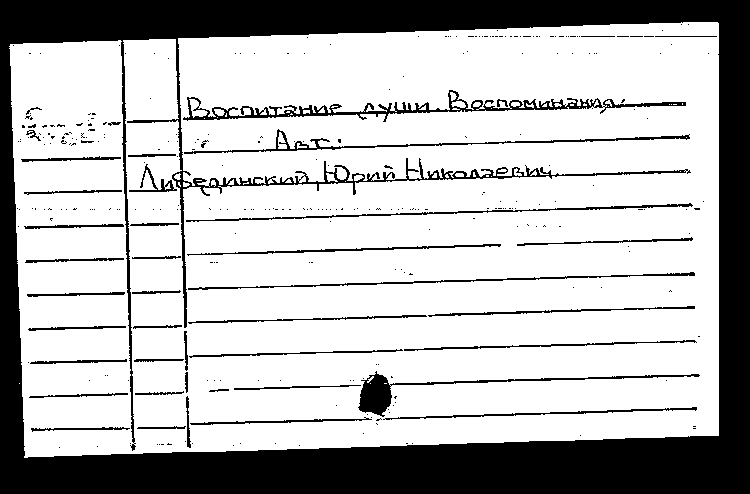 Воспитание души. Воспоминания.
Авт.:
Либединский, Юрий Николаевич.